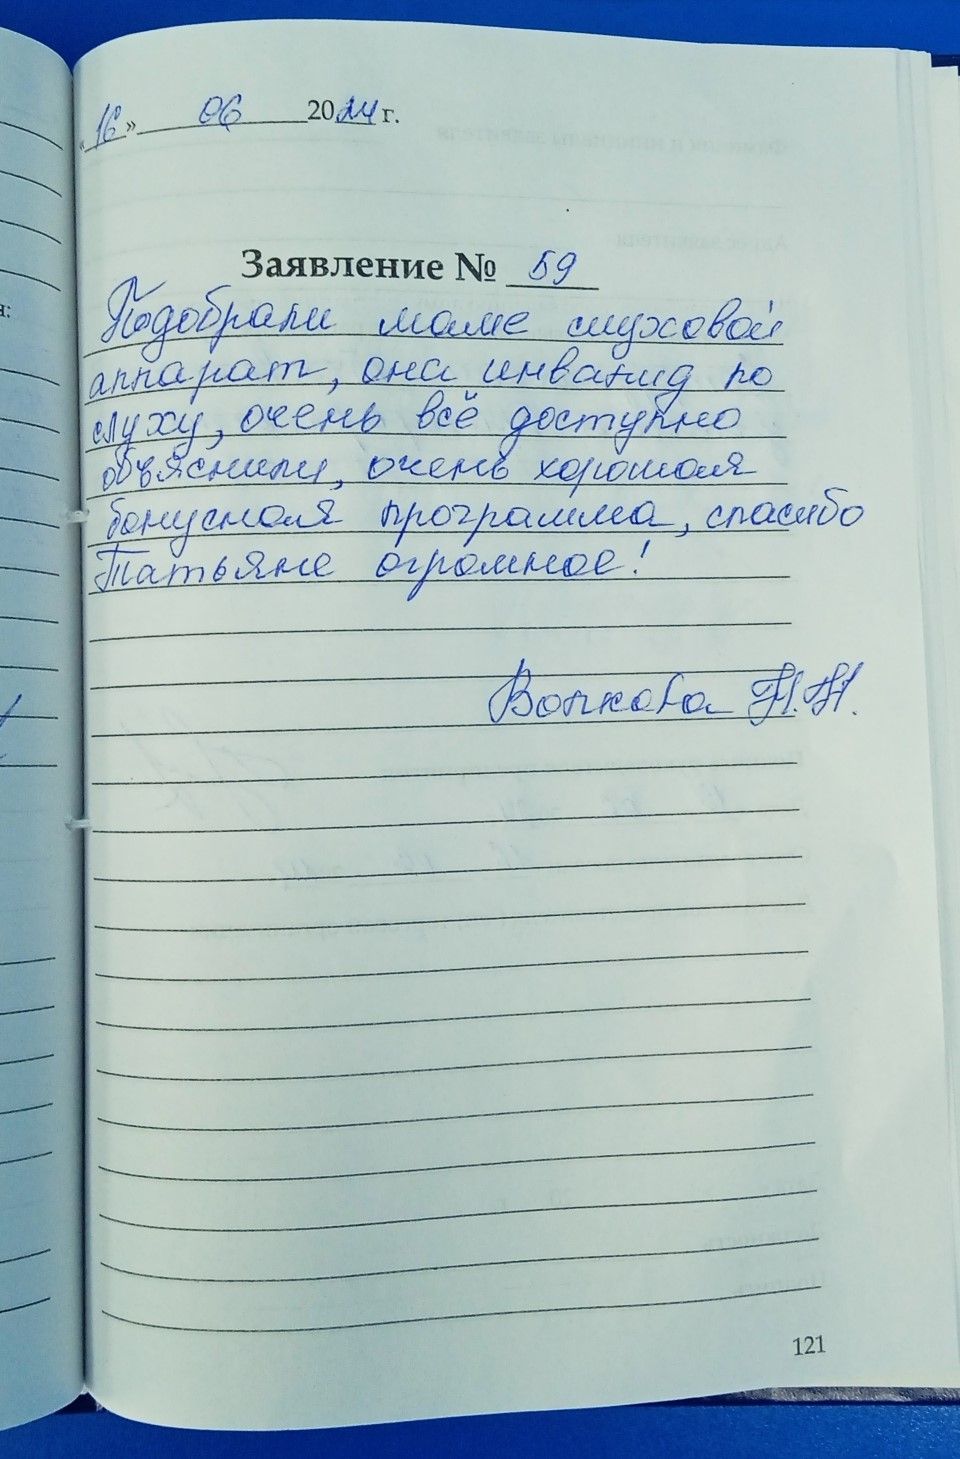 «16» 06 2024 г.
Заявление № 59
Подобрали маме слуховой
аппарат, она инвалид по
слуху, очень всё доступно
объяснили, очень хорошая
бонусная программа, спасибо
Татьяне огромное!
Волкова Н.Н.
121